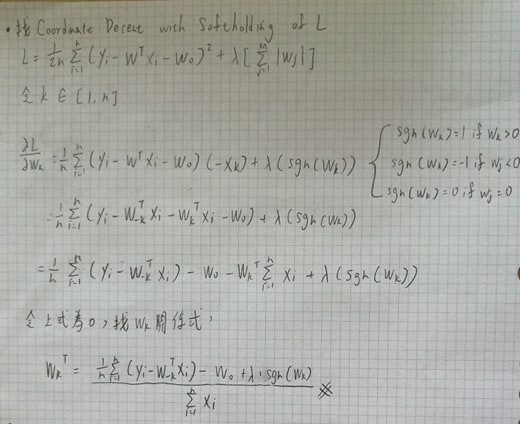 • 找 Coordinate Decent with Softholding of L
L = 1/2n Σ_{i=1}^{n} (y_i - w^T x_i - w_0)^2 + λ[ Σ_{j=1}^{m} |w_j| ]
令 k ∈ [1, n]
∂L/∂w_k = 1/n Σ_{i=1}^{n} (y_i - w^T x_i - w_0)(-x_k) + λ(sgn(w_k)) { sgn(w_k)=1 if w_k>0
sgn(w_k)=-1 if w_j<0
sgn(w_k)=0 if w_j=0
= 1/n Σ_{i=1}^{n} (y_i - w_{-k}^T x_i - w_k^T x_i - w_0) + λ(sgn(w_k))
= 1/n Σ_{i=1}^{n} (y_i - w_{-k}^T x_i) - w_0 - w_k^T Σ_{i=1}^{n} x_i + λ(sgn(w_k))
令上式為0, 找 w_k 關係式,
w_k^T = (1/n Σ_{i=1}^{n} (y_i - w_{-k}^T x_i) - w_0 + λ·sgn(w_k)) / Σ_{i=1}^{n} x_i ※